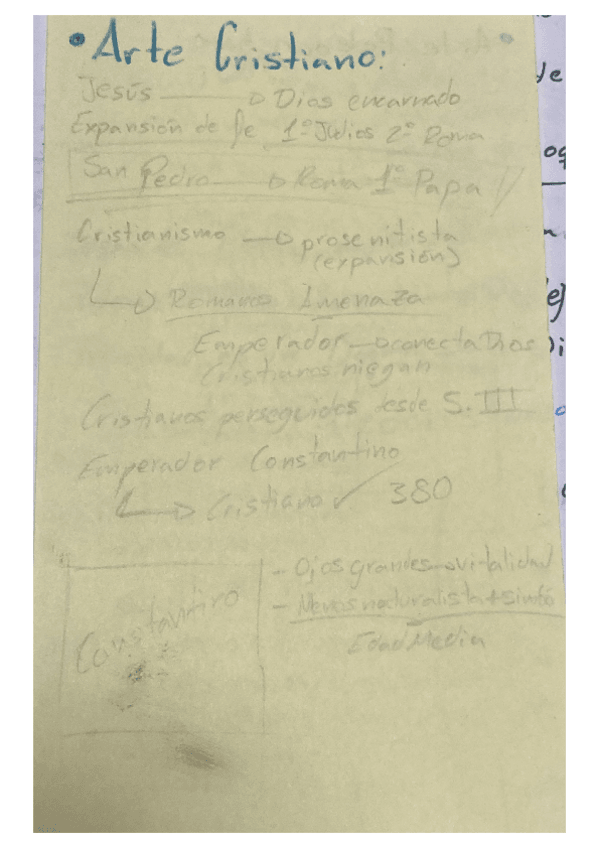 • Arte Cristiano:
Jesús → Dios encarnado
Expansión de fe 1º Judíos 2º Roma
San Pedro → Roma 1º Papa
Cristianismo → prosenitista
(expansión)
↳ Romanos Amenaza
Emperador → conecta Dios
Cristianos niegan
Cristianos perseguidos desde S. III
Emperador Constantino
↳ Cristiano ✓ 380
- Ojos grandes → vitalidad
- Menos naturalista + simbó
Constantino
Edad Media